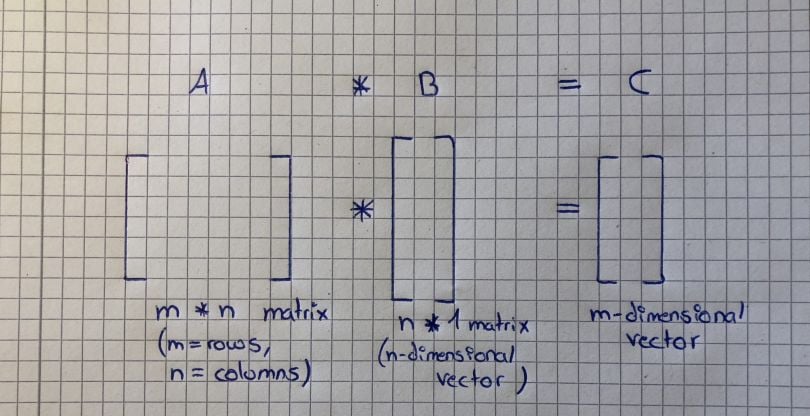 A * B = C
* =
m * n matrix
(m = rows,
n = columns)
n * 1 matrix
(n-dimensional
vector)
m-dimensional
vector